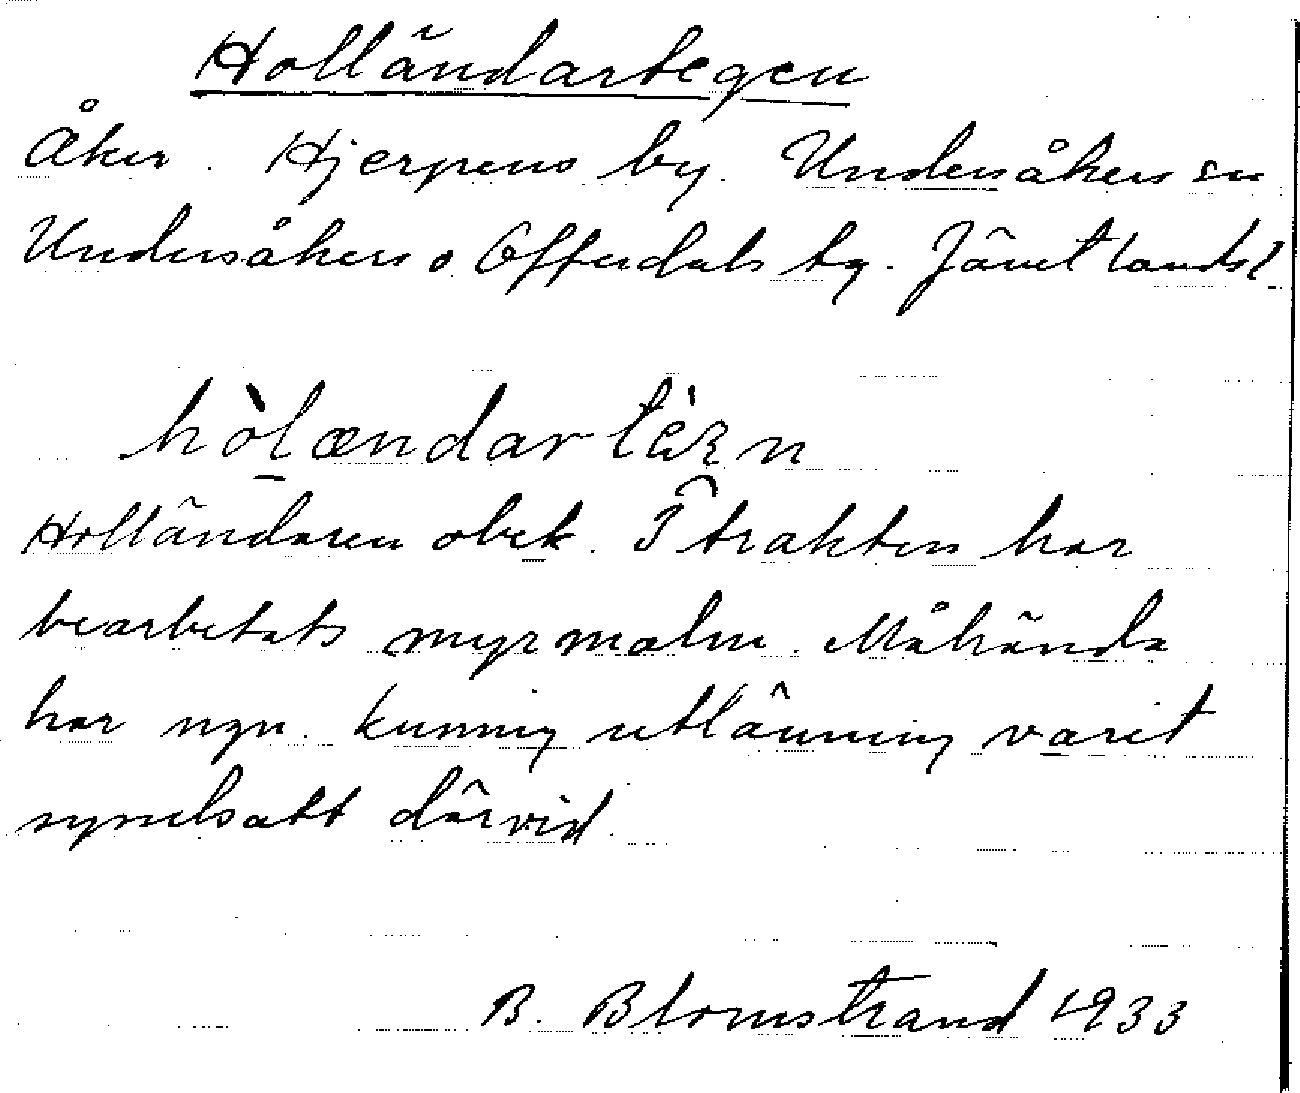 Holländartegen
Åker. Hjerpens by. Undersåkers sn
Undersåkers o Offerdals tg. Jämtlands l.
hòlændartèꞷn
Holländaren obek. I trakten har
bearbetats myrmalm. Måhända
har ngn. kunnig utlänning varit
sysselsatt därvid.
B. Blomstrand 1933